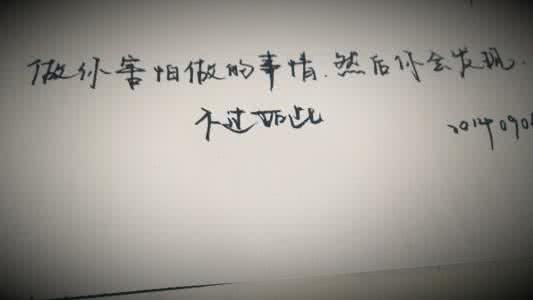 做你害怕做的事情.然后你会发现.
不过如此